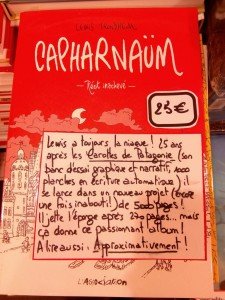 LEWIS TRONDHEIM
CAPHARNAÜM
- Récit inachevé -
25€
Lewis a toujours la niaque ! 25 ans
après les Carottes de Patagonie (son
banc d'essai graphique et narratif, 1000
planches en écriture automatique) il
se lance dans un nouveau projet (encore
une fois inabouti) de 5000 pages !
Il jette l'éponge après 270 pages... mais
ça donne ce passionnant album !
A lire aussi : Approximativement !
L'ASSOCIATION